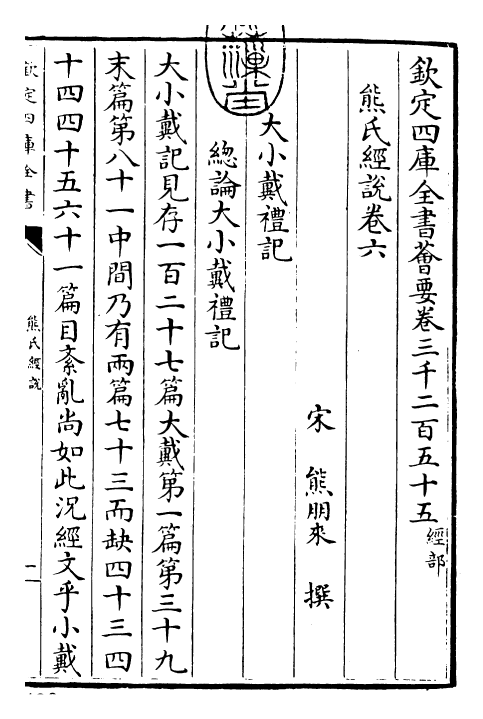 欽定四庫全書薈要卷三千二百五十五 經部
熊氏經說卷六
宋 熊朋來 撰
大小戴禮記
總論大小戴禮記
大小戴記見存一百二十七篇大戴第一篇第三十九
末篇第八十一中間乃有兩篇七十三而缺四十三四
十四四十五六十一篇目紊亂尚如此況經文乎小戴
欽定四庫全書
熊氏經說
一